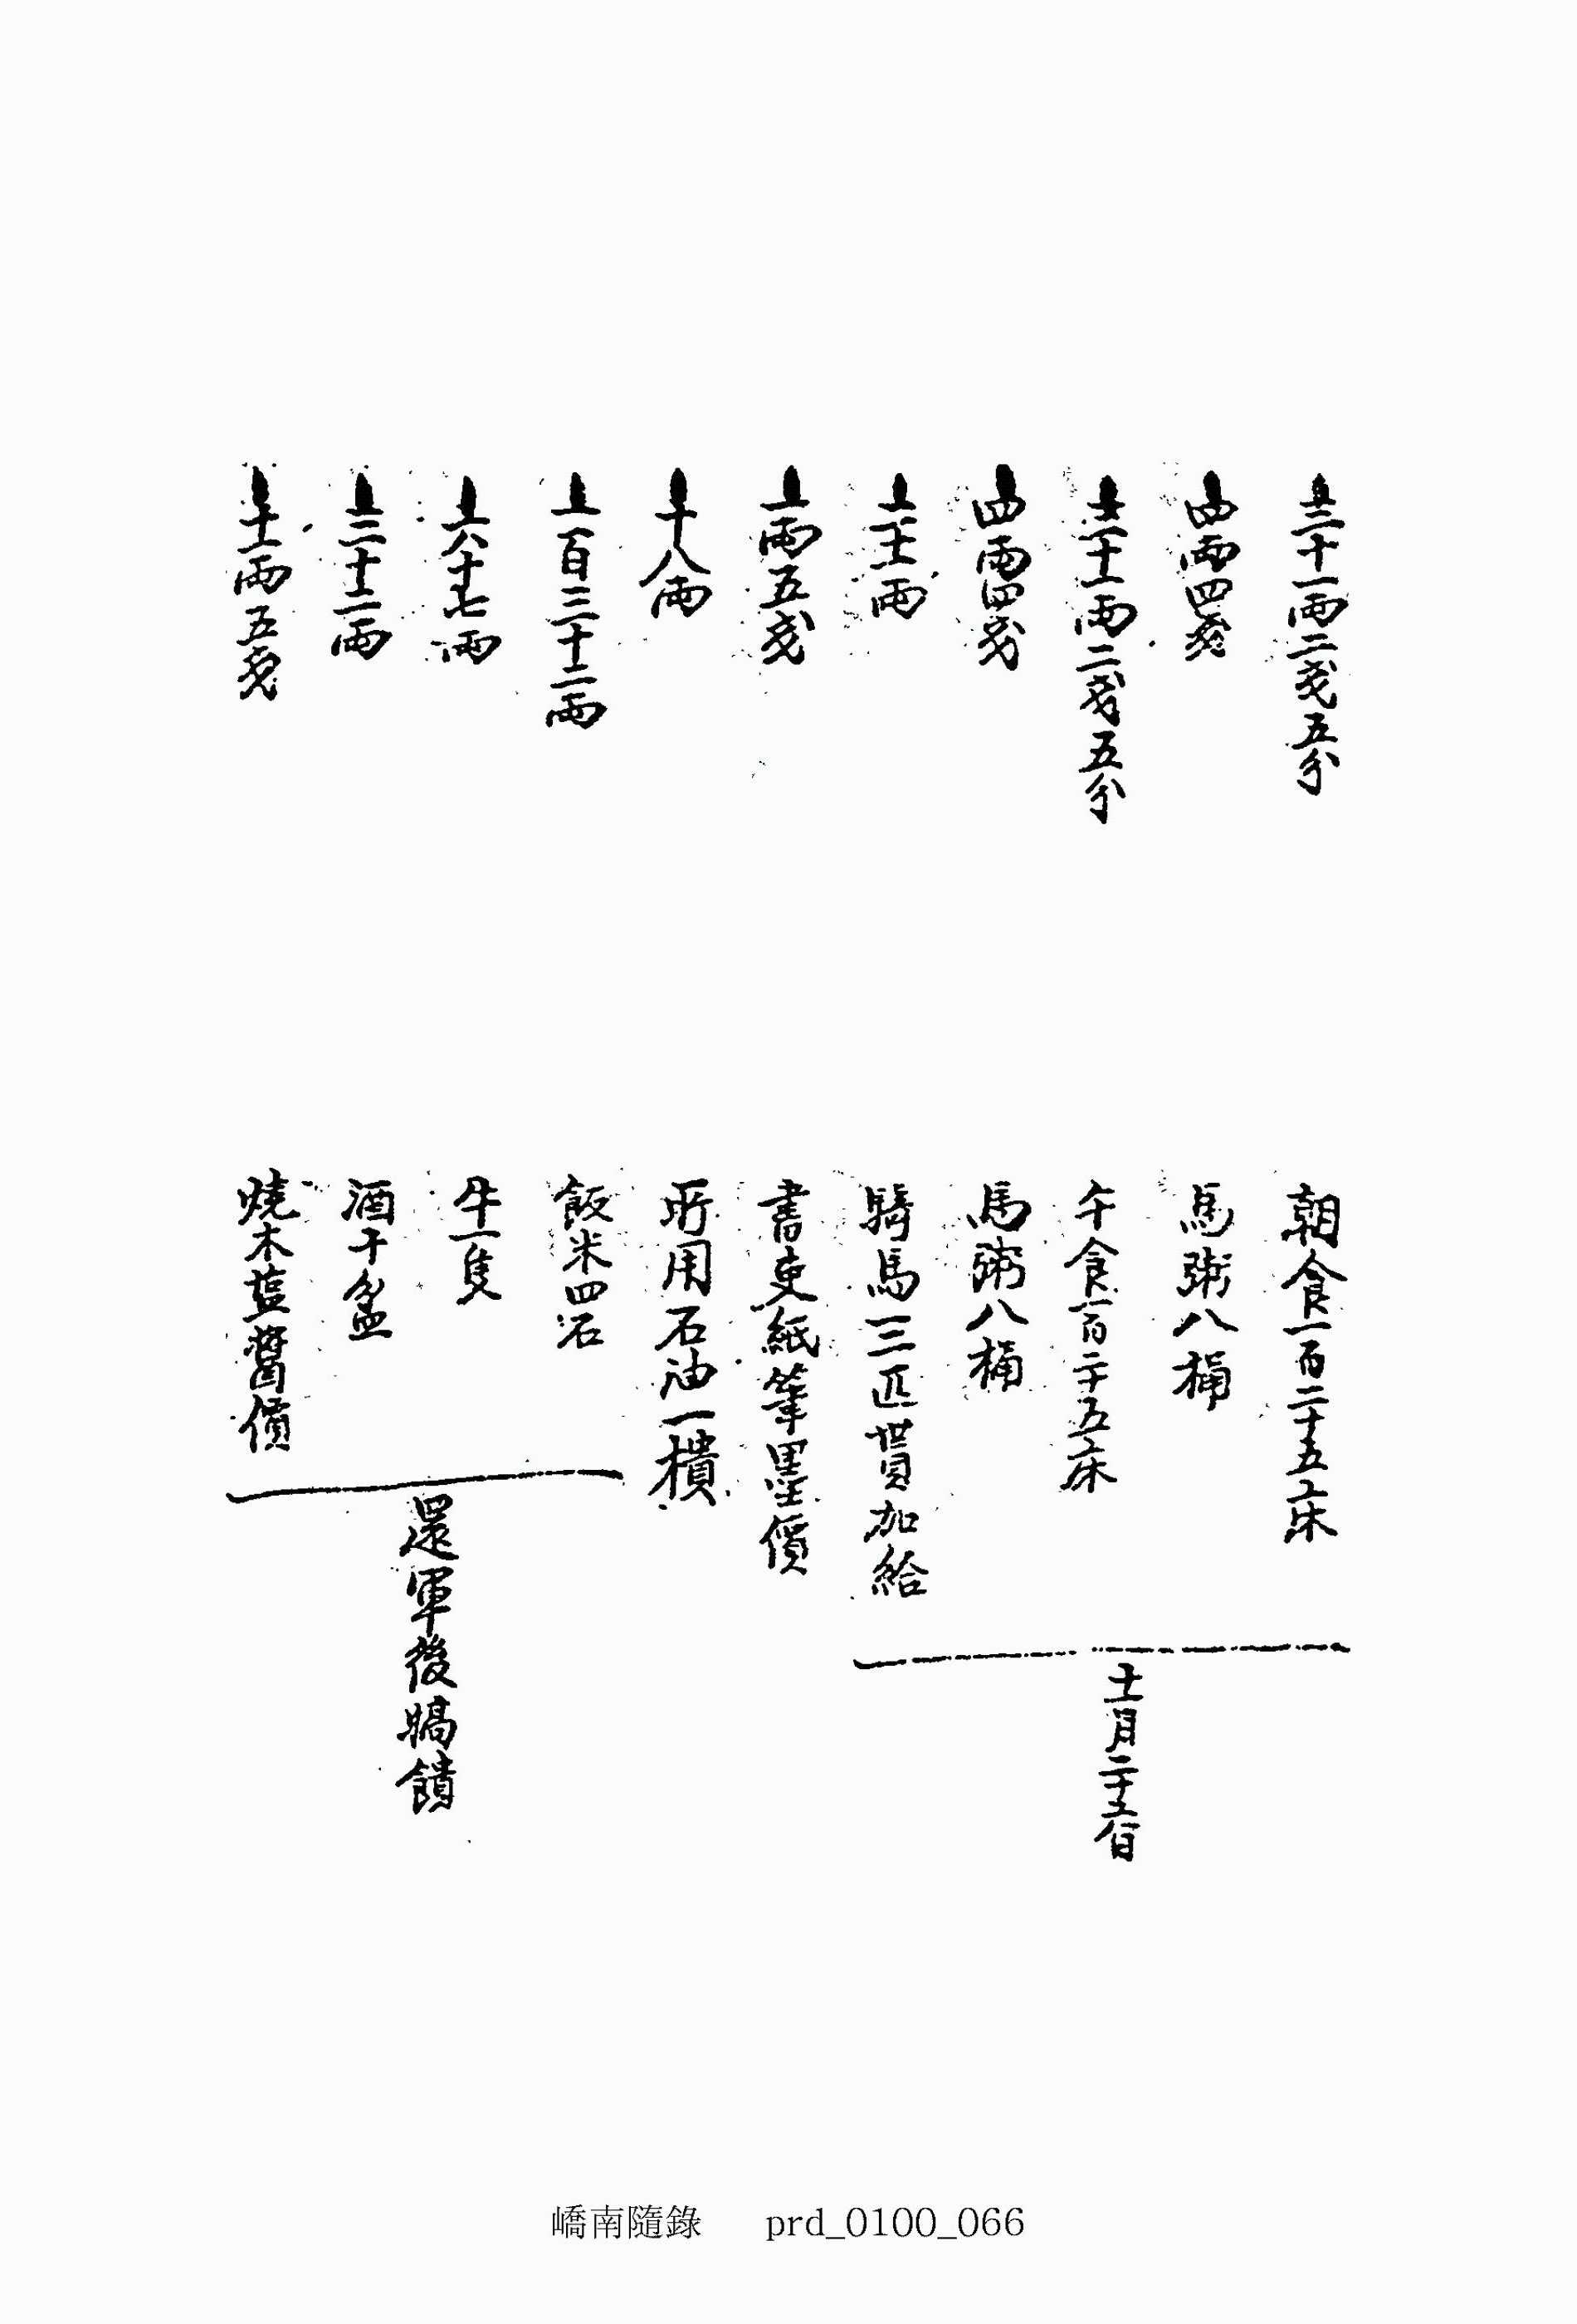 三十一兩二戔五分 朝食一百二十五床
四兩四戔 馬粥八桶
三十一兩二戔五分 午食一百二十五床
四兩四戔 馬粥八桶
兩 騎馬三匹貰加給
十一月二十五日
一兩五戔 書吏紙筆墨價
十八兩 所用石油一樻
一百三十二兩 飯米四石
六十七兩 牛一隻
二十二兩 酒十盆
十一兩五戔 燒木藍醬價
還軍後犒饋
嶠南隨錄 prd_0100_066